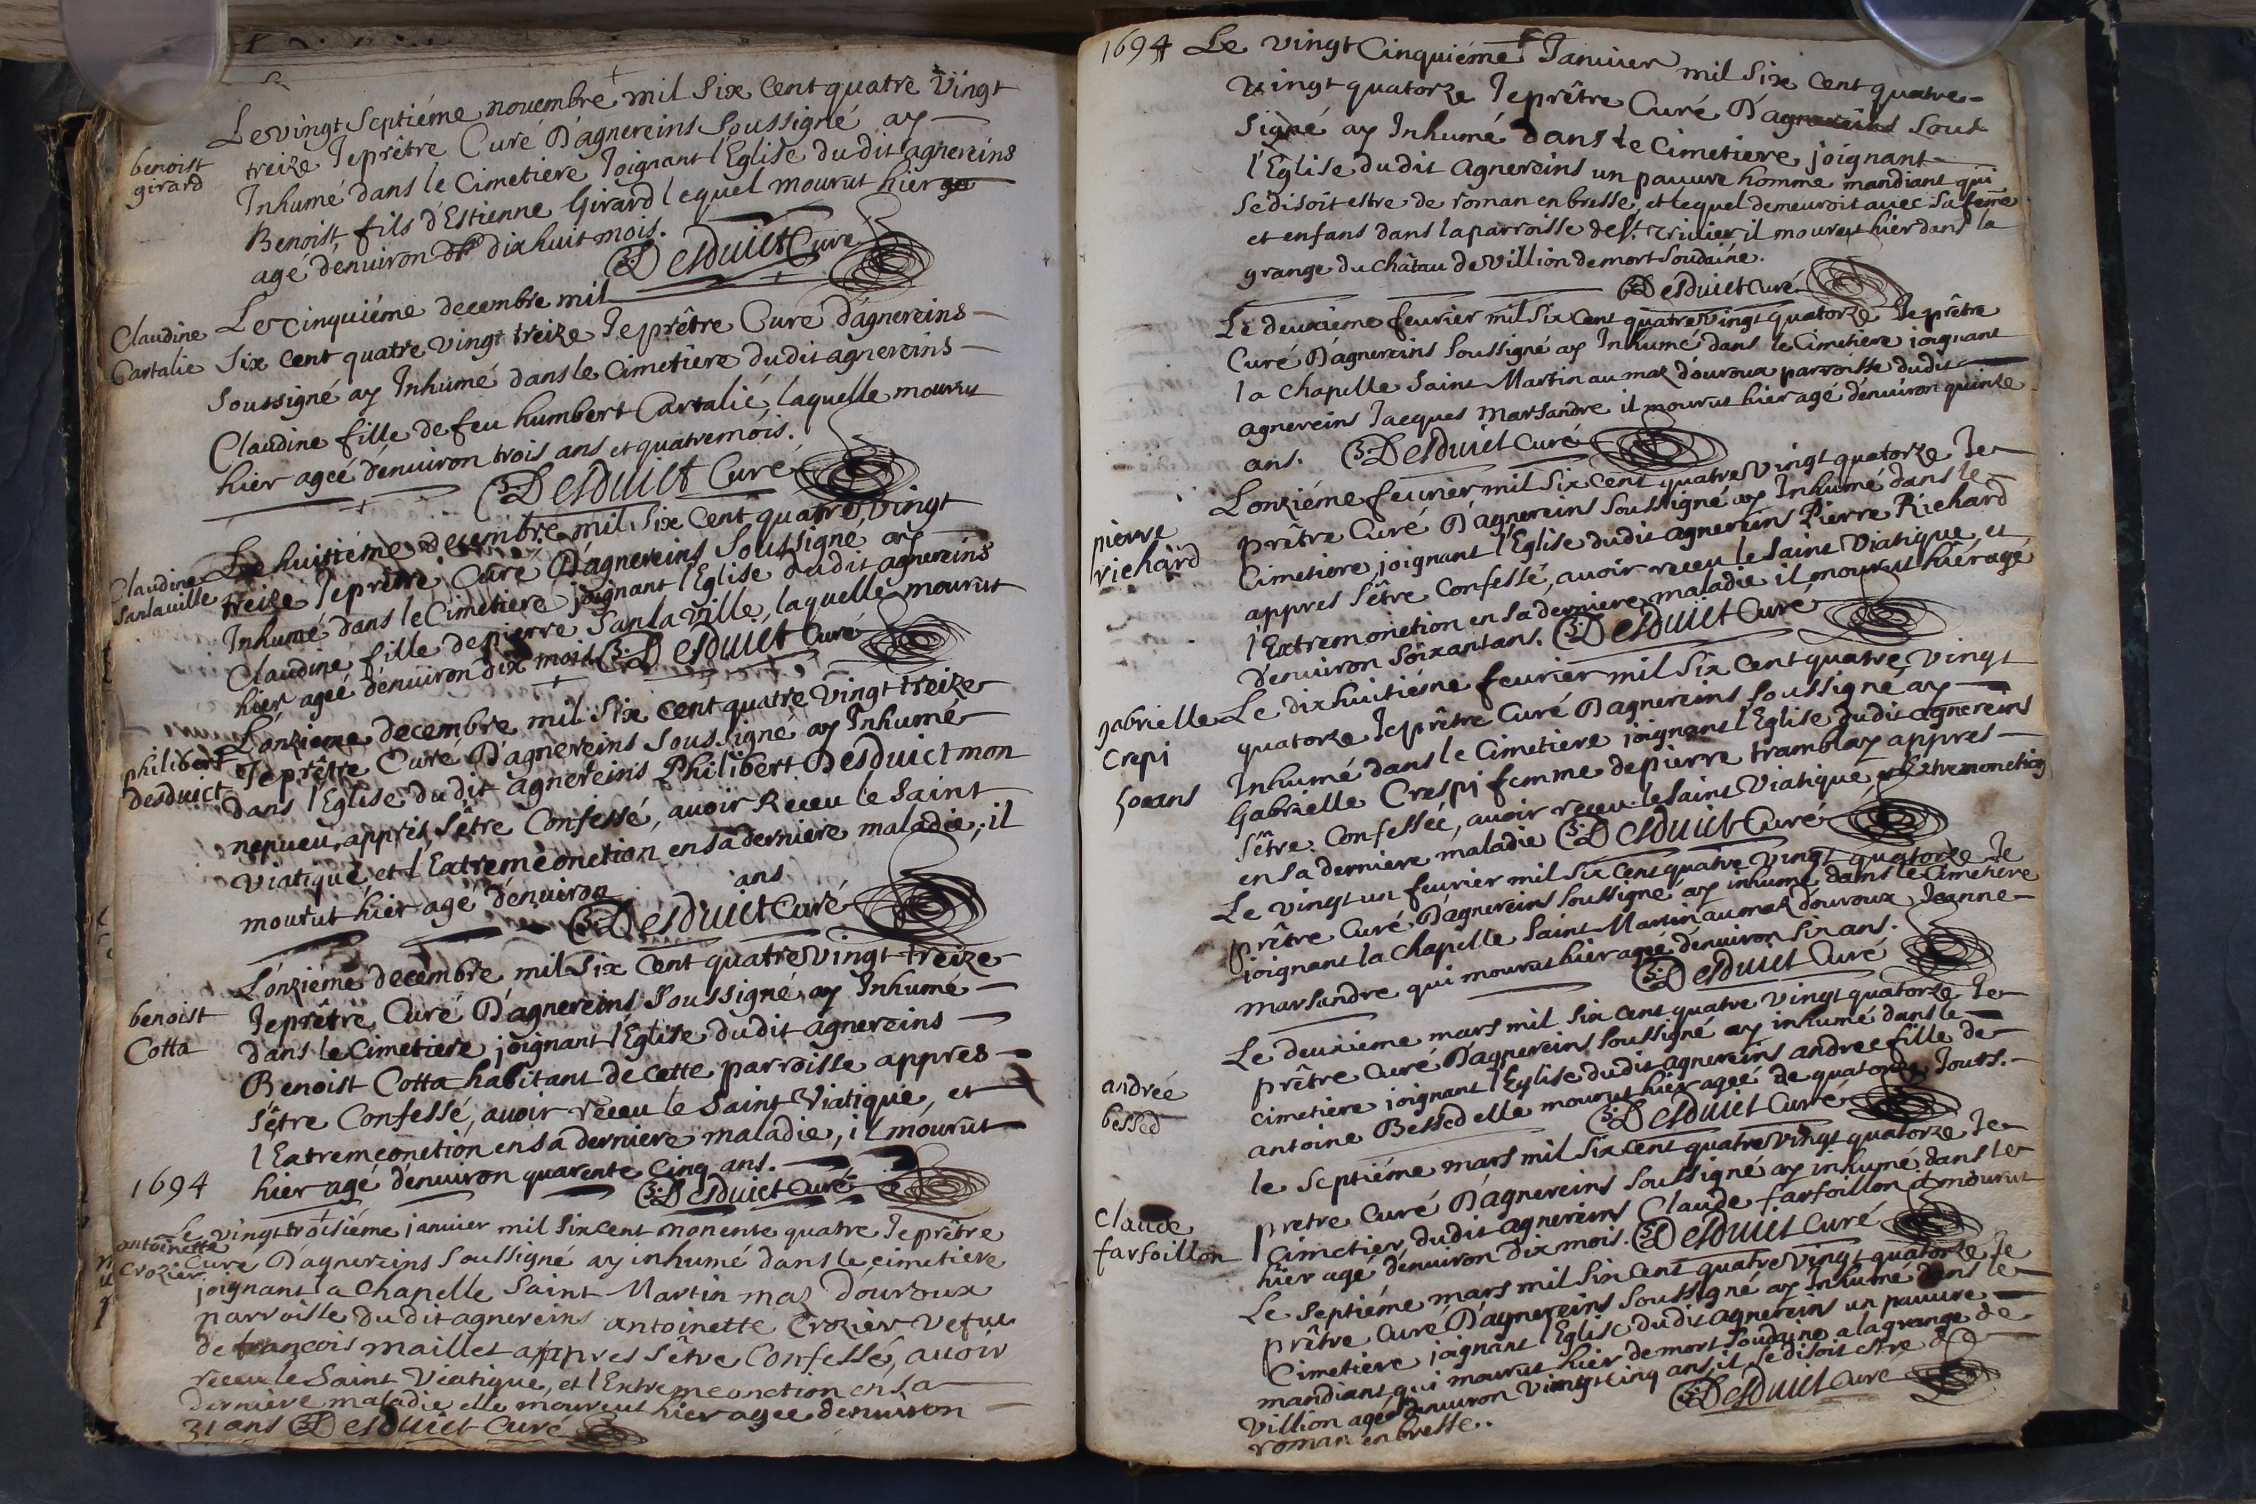 Le vingt Septiéme novembre mil Six Cent quatre Vingt
benoist
girard
treize Je prêtre Curé D'agnereins Soussigné ay
Inhumé dans le Cimetiere Joignant l'Eglise dudit agnereins
Benoist, fils d'Estienne Girard lequel mourut hier
agé d'enuiron dix huit mois. Desduict Curé
Claudine
Cartalie
Le Cinquiéme decembre mil
Six cent quatre vingt treize Je prêtre Curé d'agnereins
Soussigné ay Inhumé dans le Cimetiere dudit agnereins
Claudine fille de feu humbert Cartalié, laquelle mourut
hier ageé d'enuiron trois ans et quatre mois.
Desduict Curé
Claudine
Sanlauille
Le huitiéme decembre mil Six Cent quatre Vingt
treize Je prêtre Curé D'agnereins Soussigné ay
Inhumé dans le Cimetiere joignant l'Eglise dudit agnereins
Claudine fille de pierre Sanlaville, laquelle mourut
hier ageé d'enuiron dix mois Desduict Curé
philibert
desduict
L'onziéme decembre mil Six Cent quatre Vingt treize
Je prêtre Curé D'agnereins Soussigné ay Inhumé
dans l'Eglise dudit agnereins Philibert Desduict mon
nepueu, appres s'être Confessé, auoir Receu le Saint
Viatique, et l'Extreme onction en sa derniere maladie, il
mourut hier agé d'enuiron ans
Desduict Curé
benoist
Cotta
L'onziéme decembre mil Six Cent quatre Vingt treize
Je prêtre Curé D'agnereins Soussigné ay Inhumé
dans le Cimetiere joignant l'Eglise dudit agnereins
Benoist Cotta habitant de cette parroisse appres
s'être Confessé, auoir receu le Saint Viatique, et
l'Extreme onction en sa derniere maladie, il mourut
hier agé d'enuiron quarente Cinq ans.
Desduict Curé
1694
antoinette
Crozier
Le vingt troisiéme januier mil Six cent nonente quatre Je prêtre
Curé D'agnereins Soussigné ay inhumé dans le cimetiere
joignant la Chapelle Saint Martin mas d'ouroux
parroisse dudit agnereins antoinette Crozier Vefue
de françois maillet appres s'être Confessé, auoir
receu le Saint Viatique, et l'Extreme onction en sa
derniere maladie elle mourut hier agee d'enuiron
31 ans Desduict Curé
1694 Le vingt Cinquiéme Januier mil Six Cent quatre
vingt quatorze Je prêtre Curé D'agnereins Sous
Signé ay Inhumé dans le Cimetiere joignant
l'Eglise dudit agnereins un pauure homme mandiant qui
Se disoit estre de roman en bresse, et lequel demeuroit auec Sa feme
et enfans dans la parroisse de St. Triuier il mourut hier dans la
grange du Châtau de Villion de mort Soudaine.
Desduict Curé
Le deuxiéme feurier mil Six Cent quatre Vingt quatorze Je prêtre
Curé D'agnereins Soussigné ay Inhumé dans le Cimetiere joignant
la Chapelle Saint Martin au mas d'ouroux parroisse dudit
agnereins Jacques Marsandre il mourut hier agé d'enuiron quinze
ans. Desduict Curé
pierre
richard
L'onziéme feurier mil Six Cent quatre Vingt quatorze Je
prêtre Curé D'agnereins Soussigné ay Inhumé dans le
Cimetiere joignant l'Eglise dudit agnereins Pierre Richard
appres s'être Confessé, auoir receu le Saint Viatique, et
l'Extremonction en sa derniere maladie il mourut hier agé
d'enuiron Soixant ans. Desduict Curé
gabrielle
Crepi
50 ans
Le dixhuitiéme feurier mil Six Cent quatre Vingt
quatorze Je prêtre Curé D'agnereins Soussigné ay
Inhumé dans le Cimetiere joignant l'Eglise dudit agnereins
Gabrielle Crespi femme de pierre tramblay appres
s'être Confessée, auoir receu le Saint Viatique, et l'Extremonction
en sa derniere maladie Desduict Curé
Le vingt un feurier mil Six Cent quatre Vingt quatorze Je
prêtre Curé D'agnereins Soussigné ay inhumé dans le Cimetiere
joignant la Chapelle Saint Martin au mas d'ouroux Jeanne
marsandre qui mourut hier agee d'enuiron Six ans.
Desduict Curé
andrée
bessed
Le deuxiéme mars mil Six Cent quatre Vingt quatorze Je
prêtre Curé D'agnereins Soussigné ay inhumé dans le
Cimetiere joignant l'Eglise dudit agnereins andree fille de
antoine Bessed elle mourut hier ageé de quatorze Jours.
Desduict Curé
Claude
farfoillon
le Septiéme mars mil Six Cent quatre Vingt quatorze Je
pretre Curé D'agnereins Soussigné ay inhumé dans le
Cimetier dudit agnereins Claude farfoillon mourut
hier agé d'enuiron dix mois. Desduict Curé
Le Septiéme mars mil Six Cent quatre Vingt quatorze Je
prêtre Curé D'agnereins Soussigné ay Inhumé dans le
Cimetiere joignant l'Eglise dudit agnereins un pauure
mandiant qui mourut hier de mort Soudaine a la grange de
Villion agé d'enuiron Vingt Cinq ans, il se disoit estre de
roman en bresse.. Desduict Curé